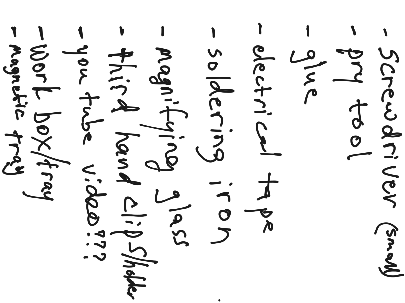 - Screwdriver (small)
- pry tool
- glue
- electrical tape
- soldering iron
- magnifying glass
- third hand clips/holder
- you tube video???
- work box/tray
- magnetic tray